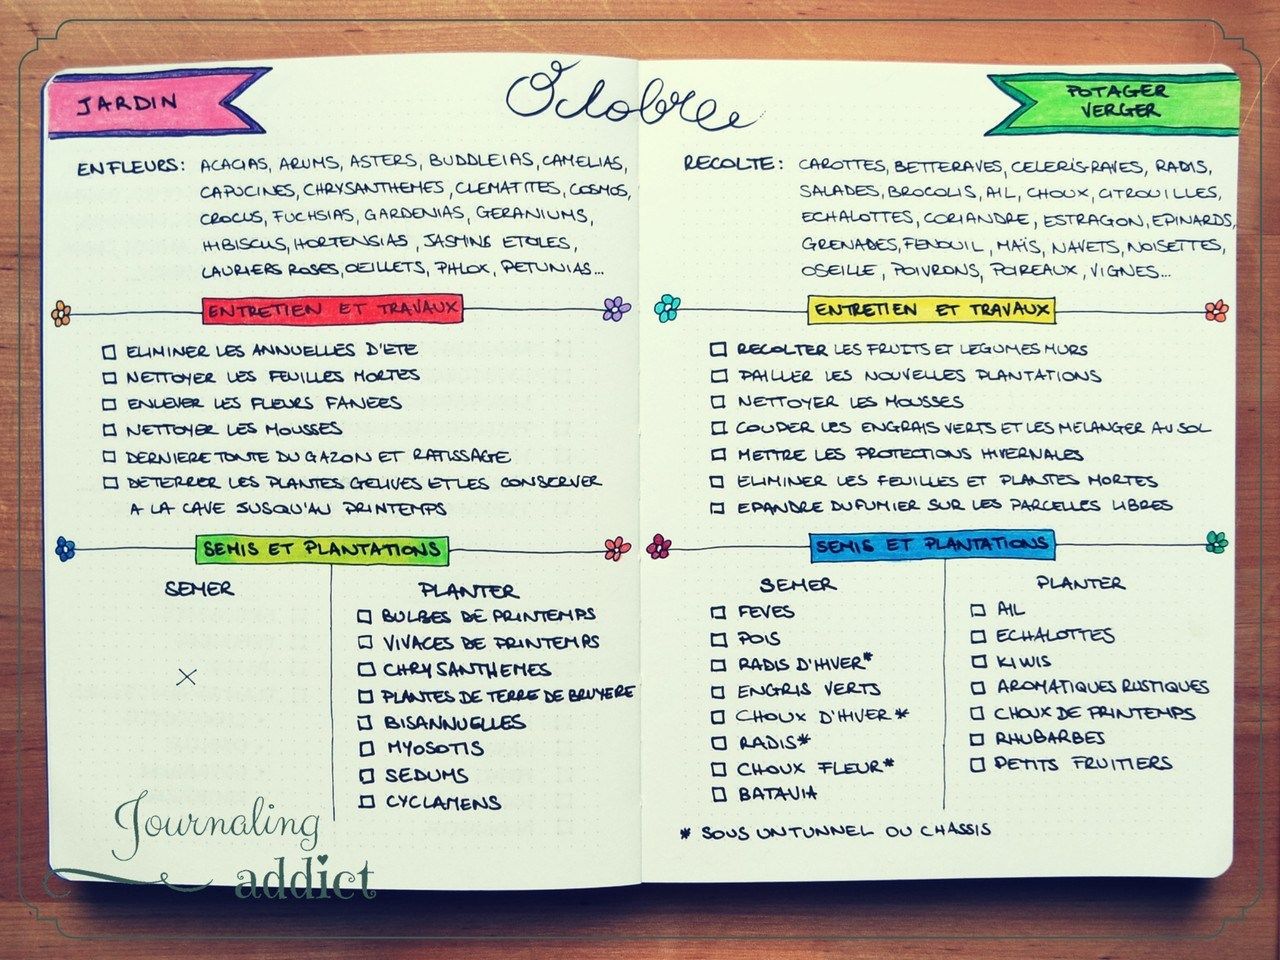 Octobre
JARDIN
EN FLEURS: ACACIAS, ARUMS, ASTERS, BUDDLEIAS, CAMELIAS,
CAPUCINES, CHRYSANTHEMES, CLEMATITES, COSMOS,
CROCUS, FUCHSIAS, GARDENIAS, GERANIUMS,
HIBISCUS, HORTENSIAS, JASMINS ETOILES,
LAURIERS ROSES, OEILLETS, PHLOX, PETUNIAS...
ENTRETIEN ET TRAVAUX
ELIMINER LES ANNUELLES D'ETE
NETTOYER LES FEUILLES MORTES
ENLEVER LES FLEURS FANEES
NETTOYER LES MOUSSES
DERNIERE TONTE DU GAZON ET RATISSAGE
DETERRER LES PLANTES GELIVES ET LES CONSERVER
A LA CAVE JUSQU'AU PRINTEMPS
SEMIS ET PLANTATIONS
SEMER
X
PLANTER
BULBES DE PRINTEMPS
VIVACES DE PRINTEMPS
CHRYSANTHEMES
PLANTES DE TERRE DE BRUYERE
BISANNUELLES
MYOSOTIS
SEDUMS
CYCLAMENS
Journaling
addict
POTAGER
VERGER
RECOLTE: CAROTTES, BETTERAVES, CELERIS-RAVES, RADIS,
SALADES, BROCOLIS, AIL, CHOUX, CITROUILLES,
ECHALOTTES, CORIANDRE, ESTRAGON, EPINARDS,
GRENADES, FENOUIL, MAÏS, NAVETS, NOISETTES,
OSEILLE, POIVRONS, POIREAUX, VIGNES...
ENTRETIEN ET TRAVAUX
RECOLTER LES FRUITS ET LEGUMES MURS
PAILLER LES NOUVELLES PLANTATIONS
NETTOYER LES MOUSSES
COUPER LES ENGRAIS VERTS ET LES MELANGER AU SOL
METTRE LES PROTECTIONS HIVERNALES
ELIMINER LES FEUILLES ET PLANTES MORTES
EPANDRE DU FUMIER SUR LES PARCELLES LIBRES
SEMIS ET PLANTATIONS
SEMER
FEVES
POIS
RADIS D'HIVER*
ENGRIS VERTS
CHOUX D'HIVER*
RADIS*
CHOUX FLEUR*
BATAVIA
PLANTER
AIL
ECHALOTTES
KIWIS
AROMATIQUES RUSTIQUES
CHOUX DE PRINTEMPS
RHUBARBES
PETITS FRUITIERS
* SOUS UN TUNNEL OU CHASSIS